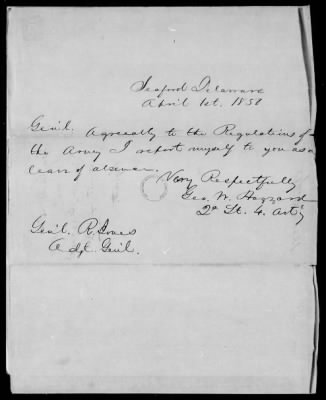 Seaford Delaware
April 1st. 1850
Gen'l. Agreeably to the Regulations of
the Army I report myself to you as on
leave of absence.
Very Respectfully
Geo. W. Hazzard
2d Lt. 4. Art'y
Gen'l. R. Jones
Adj. Gen'l.